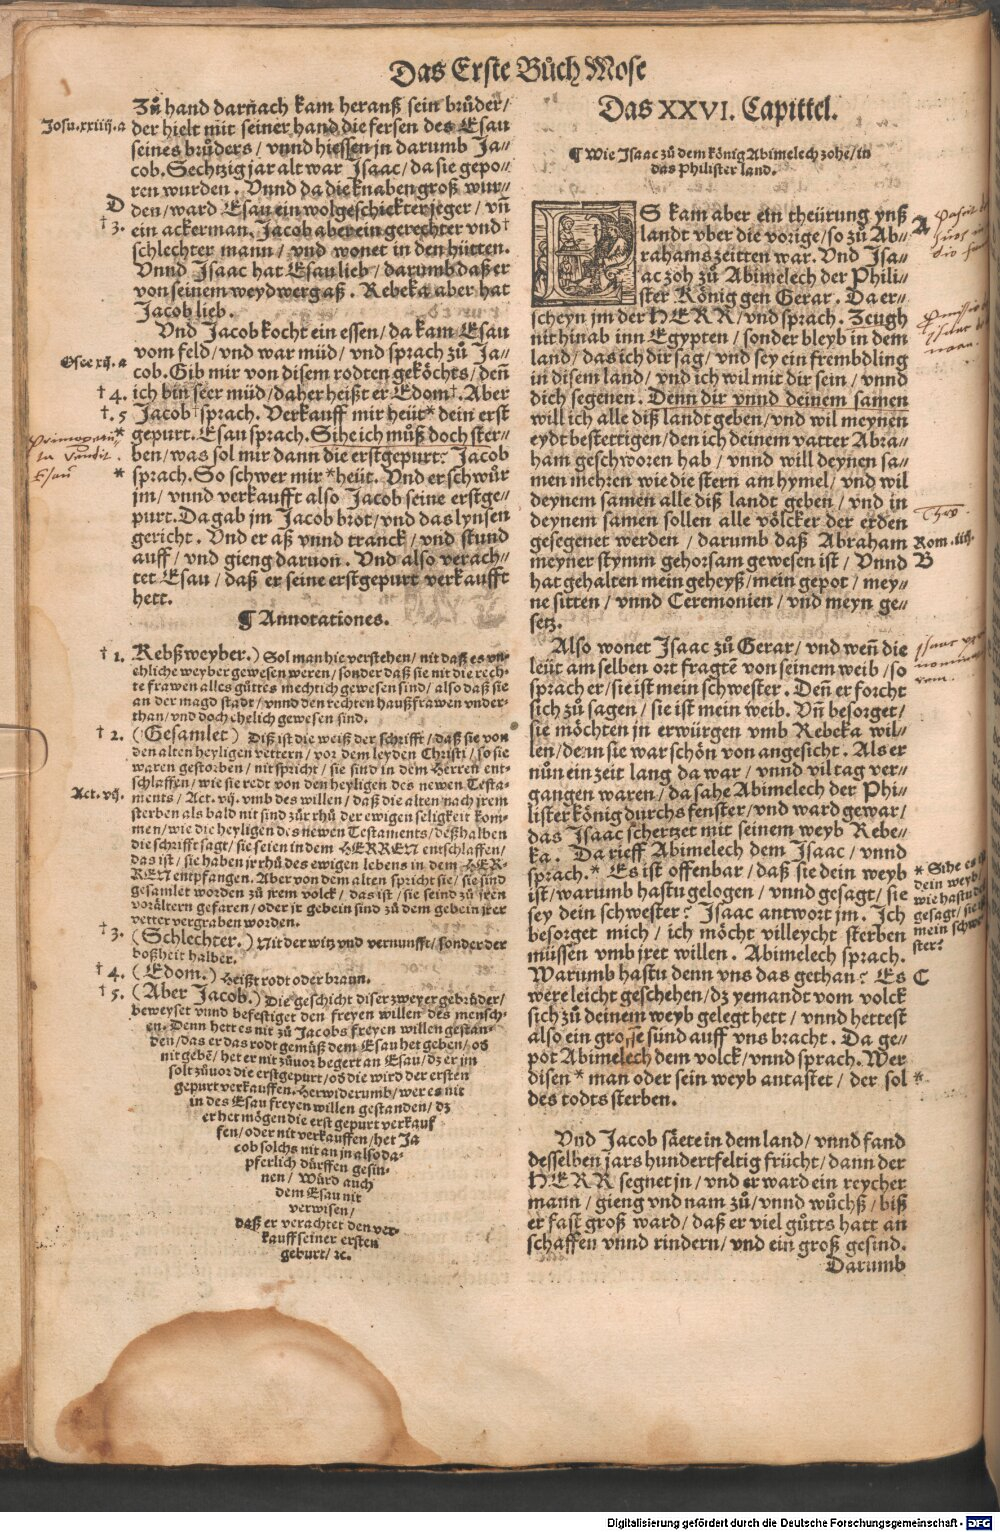 Das Erste Bůch Mose
Zůhand darnach kam herauß sein brůder/
Josu.xxiiij.a
der hielt mit seiner hand die fersen des Esau
seines brůders / vnnd hiessen jn darumb Ja⸗
cob. Sechtzig jar alt war Isaac / da sie gepo⸗
ren wurden. Vnnd da die knaben groß wur⸗
D
den / ward Esau ein wolgeschickter jeger / vñ
† 3.
ein ackerman. Jacob aber ein gerechter vnd†
schlechter mann / vnd wonet in den hütten.
Vnnd Isaac hat Esau lieb / darumb daß er
von seinem weydwerg aß. Rebeka aber hat
Jacob lieb.
Vnd Jacob kocht ein essen / da kam Esau
Osee xij.a
vom feld / vnd war müd / vnd sprach zů Ja⸗
cob. Gib mir von disem rodten geköchts / deñ
† 4.
ich bin seer müd / daher heißt er Edom†. Aber
†. 5
Jacob †sprach. Verkauff mir heüt* dein erst
*
gepurt. Esau sprach. Sihe ich můß doch ster⸗
ben / was sol mir dann die erstgepurt? Jacob
*
sprach. So schwer mir *heüt. Vnd er schwůr
jm / vnnd verkaufft also Jacob seine erstge⸗
purt. Da gab jm Jacob brot / vnd das lynsen
gericht. Vnd er aß vnnd tranck / vnd stund
auff / vnd gieng daruon. Vnd also verach⸗
tet Esau / daß er seine erstgepurt verkaufft
hett.
¶ Annotationes.
† 1. Kebßweyber.) Sol man hie verstehen / nit daß es vn⸗
ehliche weyber gewesen weren / sonder daß sie nit die rech⸗
te frawen alles gůttes mechtich gewesen sind / also daß sie
an der magd stadt / vnnd den rechten haußfrawen vnder⸗
than / vnd doch ehelich gewesen sind.
† 2. (Gesamlet) Diß ist die weiß der schrifft / daß sie von
den alten heyligen vettern / vor dem leyden Christi / so sie
waren gestorben / nit spricht / sie sind in dem Herren ent⸗
schlaffen / wie sie redt von den heyligen des newen Testa⸗
Act. vij.
ments / Act. vij. vmb des willen / daß die alten nach jrem
sterben als bald nit sind zůr rhů der ewigen seligkeit kom⸗
men / wie die heyligen des newen Testaments / deßhalben
die schrifft sagt / sie seien in dem HERREN entschlaffen /
das ist / sie haben jr rhů des ewigen lebens in dem HER⸗
REN entpfangen. Aber von dem alten spricht sie / sie sind
gesamlet worden zů jrem volck / das ist / sie seind zů jren
vorältern gefaren / oder jr gebein sind zů dem gebein jrer
vetter vergraben worden.
† 3. (Schlechter.) Mit der witz vnd vernunfft / sonder der
boßheit halber.
† 4. (Edom.) Heißt rodt oder braun.
† 5. (Aber Jacob.) Die geschicht diser zweyer gebrůder/
beweyset vnnd befestiget den freyen willen des mensch⸗
en. Denn hett es nit zů Jacobs freyen willen gestan⸗
den / das er das rodt gemüß dem Esau het geben / od
nit gebē / het er nit zůuor begert an Esau / dz er jm
solt zůuor die erstgepurt / od die wird der ersten
gepurt verkauffen. Herwiderumb / wer es nit
in des Esau freyen willen gestanden / dz
er het mögen die erst gepurt verkauf
fen / oder nit verkauffen / het Ja
cob solchs nit an jn also da⸗
pferlich dürffen gesin⸗
nen / Würd auch
dem Esau nit
verwisen /
daß er verachtet den ver
kauff seiner ersten
geburt / ꝛc.
Das XXVI. Capittel.
¶ Wie Isaac zů dem könig Abimelech zohe / in
das Philister land.
ES kam aber ein theürung ynß
A
landt vber die vorige / so zů Ab⸗
rahams zeitten war. Vnd Isa⸗
ac zoh zů Abimelech der Phili⸗
ster König gen Gerar. Da er⸗
scheyn jm der HERR / vnd sprach. Zeugh
nit hinab inn Egypten / sonder bleyb in dem
land / das ich dir sag / vnd sey ein frembdling
in disem land / vnd ich wil mit dir sein / vnnd
dich segenen. Denn dir vnnd deinem samen
will ich alle diß landt geben / vnd wil meynen
eydt bestettigen / den ich deinem vatter Abra⸗
ham geschworen hab / vnnd will deynen sa⸗
men mehren wie die stern am hymel / vnd wil
deynem samen alle diß landt geben / vnd in
deynem samen sollen alle völcker der erden
gesegenet werden / darumb daß Abraham
Rom. iiij.
meyner stymm gehorsam gewesen ist / Vnnd
B
hat gehalten mein geheyß / mein gepot / mey⸗
ne sitten / vnnd Ceremonien / vnd meyn ge⸗
setz.
Also wonet Isaac zů Gerar / vnd weñ die
leüt am selben ort fragtē von seinem weib / so
sprach er / sie ist mein schwester. Deñ er forcht
sich zů sagen / sie ist mein weib. Vñ besorget /
sie möchten jn erwürgen vmb Rebeka wil⸗
len / denn sie war schön von angesicht. Als er
nůn ein zeit lang da war / vnnd vil tag ver⸗
gangen waren / da sahe Abimelech der Phi⸗
lister könig durchs fenster / vnd ward gewar /
das Isaac schertzet mit seinem weyb Rebe⸗
ka. Da rieff Abimelech dem Isaac / vnnd
sprach.* Es ist offenbar / daß sie dein weyb
ist / warumb hastu gelogen / vnnd gesagt / sie
sey dein schwester? Isaac antwort jm. Ich
besorget mich / ich möcht villeycht sterben
müssen vmb jret willen. Abimelech sprach.
* Sihe es
dein weyb /
wie hastu
gesagt / sie
mein schwe
ster?
Warumb hastu denn vns das gethan? Es
C
were leicht geschehen / dz yemandt vom volck
sich zů deinem weyb gelegt hett / vnnd hettest
also ein grosse sünd auff vns bracht. Da ge⸗
pot Abimelech dem volck / vnnd sprach. Wer
disen * man oder sein weyb antastet / der sol
*
des todts sterben.
Vnd Jacob säete in dem land / vnnd fand
desselben jars hundertfeltig frücht / dann der
HERR segnet jn / vnd er ward ein reycher
mann / gieng vnd nam zů / vnnd wůchß / biß
er fast groß ward / daß er viel gůtts hatt an
schaffen vnnd rindern / vnd ein groß gesind.
Darumb
Digitalisierung gefördert durch die Deutsche Forschungsgemeinschaft - DFG